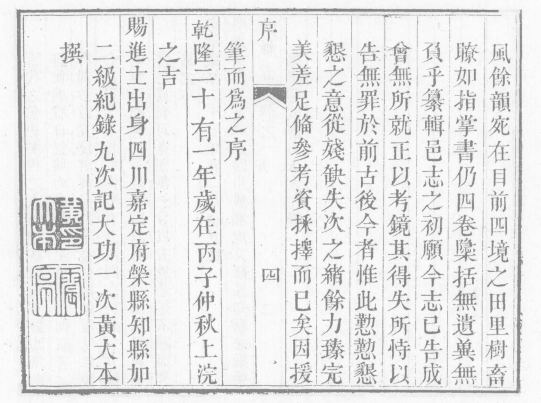 風餘韻宛在目前四境之田里樹畜
瞭如指掌書仍四卷檃括無遺冀無
負乎纂輯邑志之初願今志已告成
會無所就正以考鏡其得失所恃以
告無罪於前古後今者惟此懃懃懇
懇之意從殘缺失次之緒餘力臻完
美差足偹參考資採擇而已矣因援
序
四
筆而爲之序
乾隆二十有一年歲在丙子仲秋上浣
之吉
賜進士出身四川嘉定府榮縣知縣加
二級紀錄九次記大功一次黃大本
撰
黃印
大本